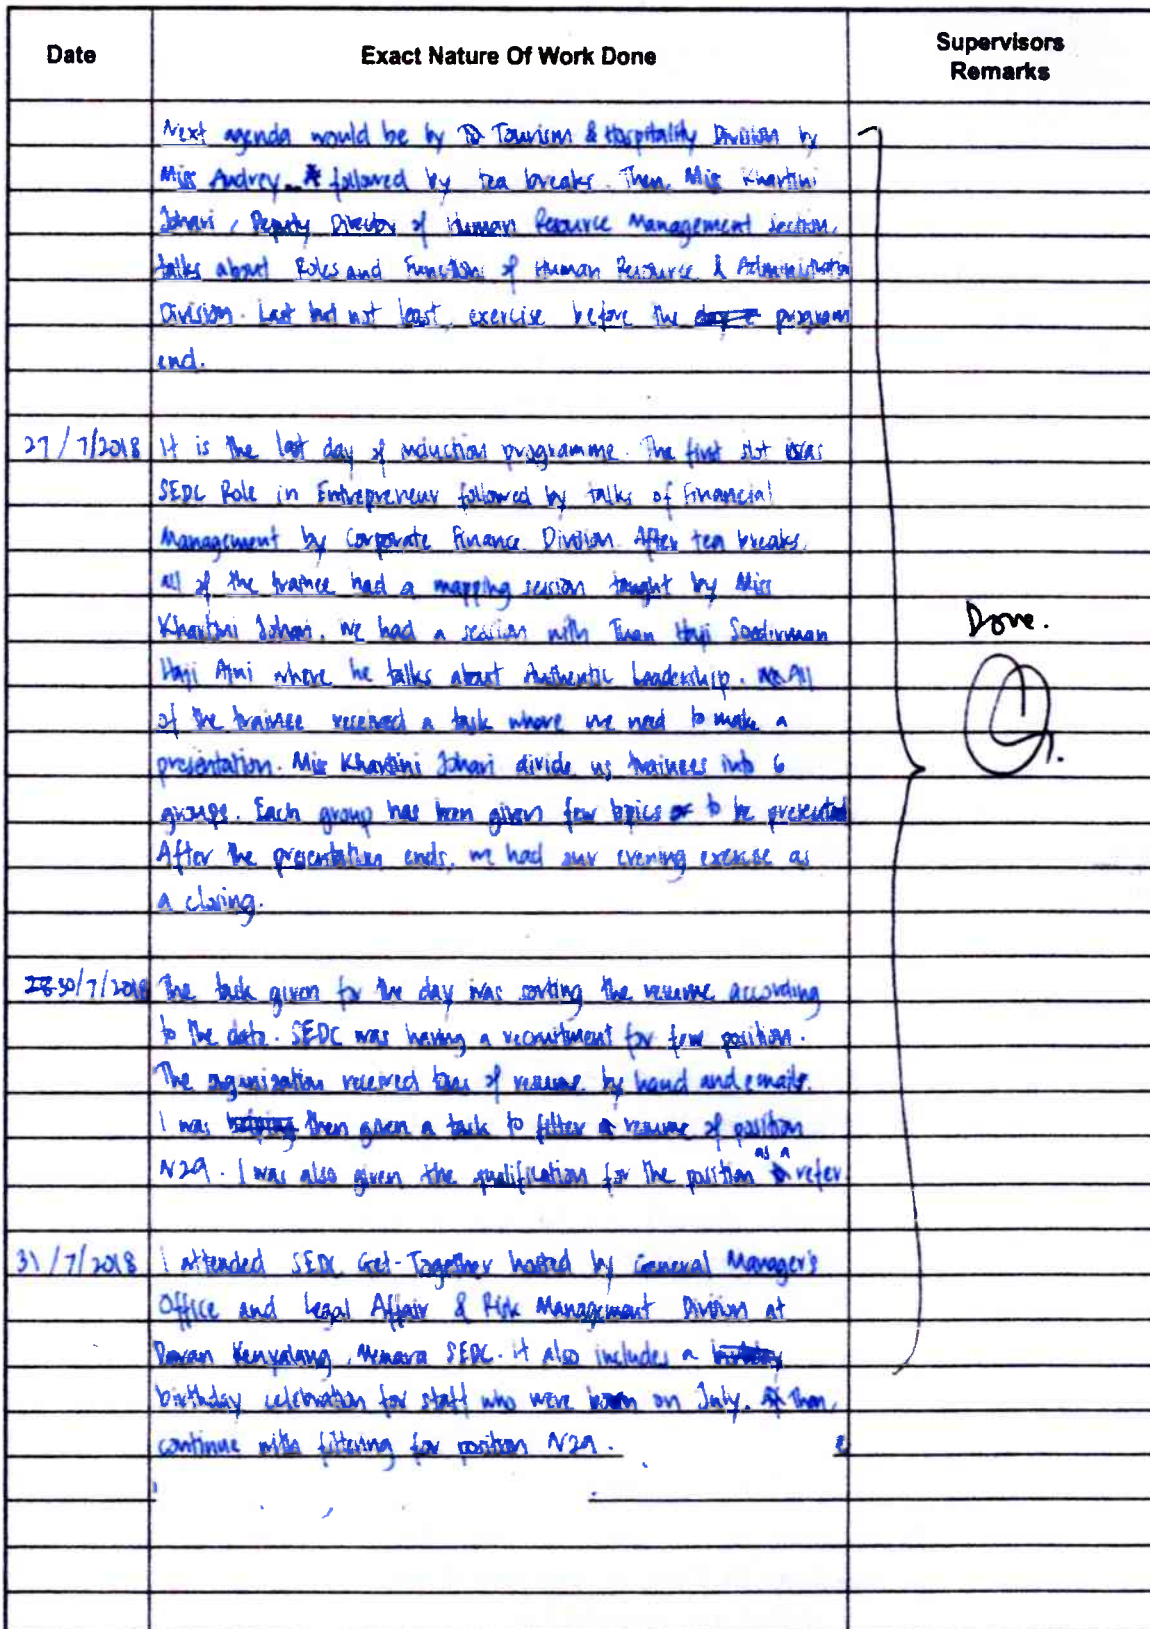 Date
Exact Nature Of Work Done
Supervisors
Remarks
Next agenda would be by Tourism & Hospitality Division by
Miss Audrey followed by tea breaks. Then, Miss Khartini
Johari, Deputy Director of Human Resource Management section,
talks about Roles and Function of Human Resource & Administration
Division. Last but not least, exercise before the program
end.
27/7/2018 It is the last day of induction programme. The first slot was
SEDC Role in Entrepreneur followed by talks of Financial
Management by Corporate Finance Division. After tea breaks,
all of the trainee had a mapping session taught by Miss
Khartini Johari. We had a session with Tuan Haji Soedirman
Haji Aini where he talks about Authentic Leadership. All
of the trainee received a task where we need to make a
presentation. Miss Khartini Johari divide us trainees into 6
groups. Each group has been given few topics to be presented
After the presentation ends, we had our evening exercise as
a closing.
Done.
30/7/2018 The task given for the day was sorting the resume according
to the date. SEDC was having a recruitment for few position.
The organization received tons of resume by hand and emails.
I was then given a task to filter resume of position
N29. I was also given the qualification for the position as a refer.
31/7/2018 I attended SEDC Get-Together hosted by General Manager's
Office and Legal Affair & Risk Management Division at
Dewan Kenyalang, Menara SEDC. It also includes a
birthday celebration for staff who were born on July. Then,
continue with filtering for position N29.